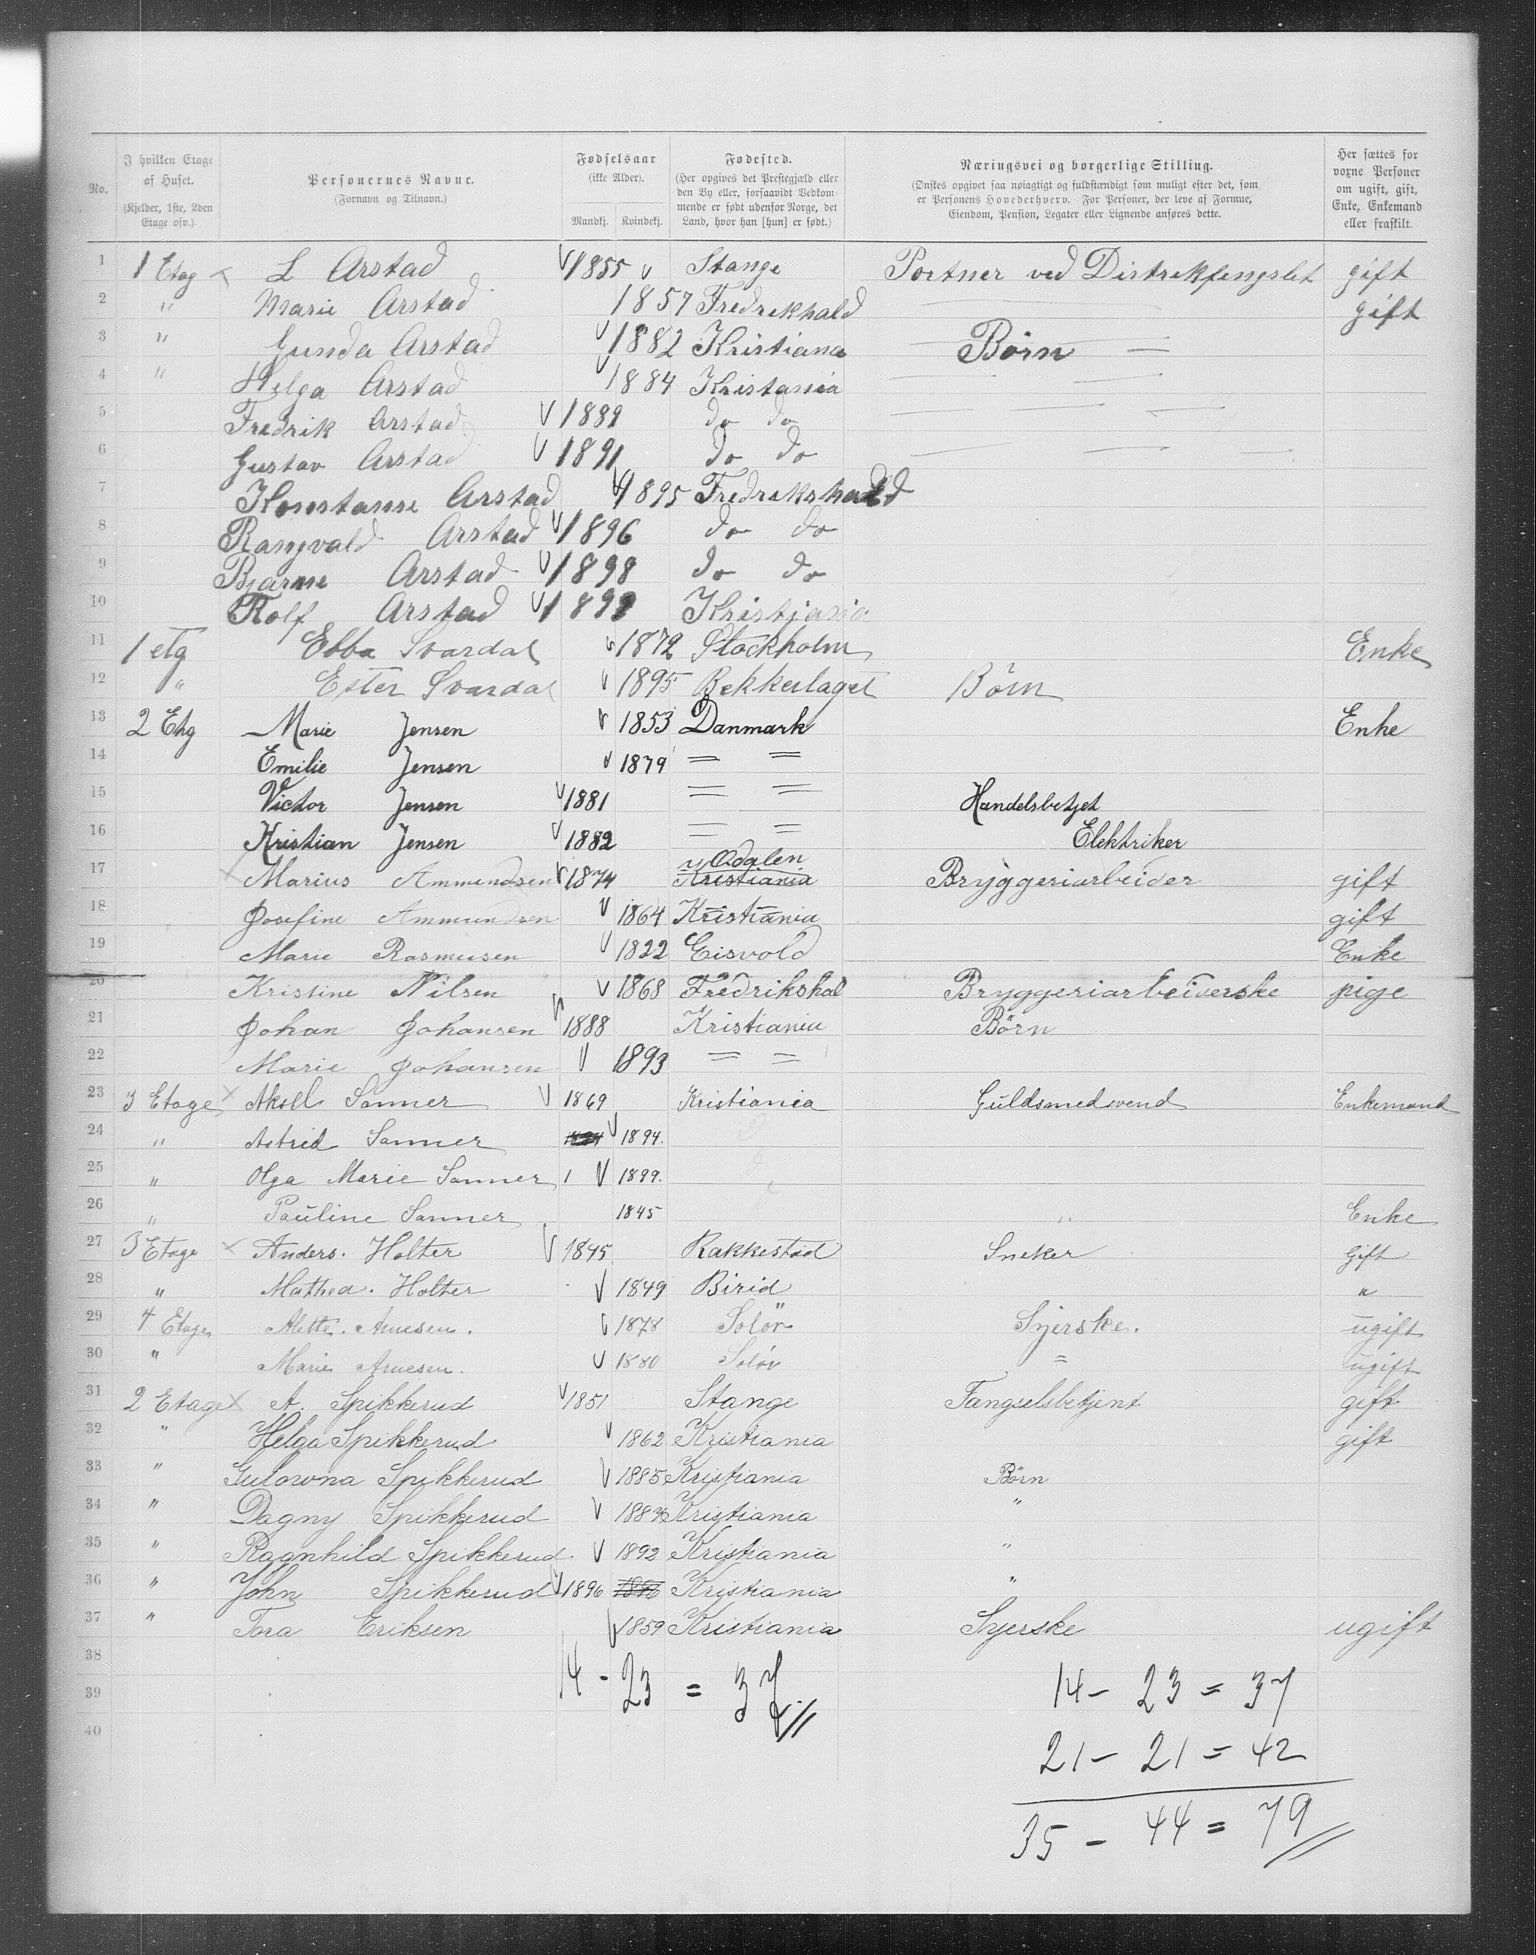 No.
I hvilken Etage af Huset. (Kjelder, 1ste, 2den Etage osv.)
Personernes Navne. (Fornavn og Tilnavn.)
Fødselsaar (ikke Alder). Mandkj. Kvindekj.
Fødested. (Her opgives det Prestegjæld eller den By eller, forsaavidt Vedkommende er født udenfor Norge, det Land, hvor han [hun] er født.)
Næringsvei og borgerlige Stilling. (Ønskes opgivet saa nøiagtigt og fuldstændigt som muligt efter det, som er Personens Hovederhverv. For Personer, der leve af Formue, Eiendom, Pension, Legater eller Lignende anføres dette.
Her sættes for voxne Personer om ugift, gift, Enke, Enkemand eller fraskilt.
1 1 Etag L Arstad 1855 Stange Portner ved Distrekfengslet gift
2 " Marie Arstad 1857 Fredrekhald gift
3 " Gunda Arstad 1882 Kristiana Börn
4 " Helga Arstad 1884 Kristania
5 Fredrik Arstad 1889 do do
6 Gustav Arstad 1891 do do
7 Konstanse Arstad 1895 Fredrekshald
8 Rangvald Arstad 1896 do do
9 Bjarne Arstad 1898 do do
10 Rolf Arstad Kristjania
11 1 etg Ebba Svardal 1872 Stockholm Enke
12 " Ester Svardal 1895 Bekkelaget Börn
13 2 Etg Marie Jensen 1853 Danmark Enke
14 Emilie Jensen 1879 = =
15 Victor Jensen 1881 = = Handelsbetjet
16 Kristian Jensen 1882 = = Elektriker
17 Marius Ammundsen 1874 Odalen Kristiania Bryggeriarbeider gift
18 Josefine Ammundsen 1864 Kristiania gift
19 Marie Rasmusen 1822 Eisvold Enke
20 Kristine Nilsen 1868 Fredrikshal Bryggeriarbeiderske pige
21 Johan Johansen 1888 Kristiania Börn
22 Marie Johansen 1893 = =
23 3 Etage Aksel Sanner 1869 Kristiania Guldsmedsvend Enkemand
24 " Astrid Sanner 1894.
25 " Olga Marie Sanner 1 1899.
26 " Pauline Sanner 1845 " Enke
27 3 Etage Anders. Holter 1845 Rakkestad Sneker Gift
28 " Mathea. Holter 1849 Birid "
29 4 Etage Alette. Arnesen. 1878 Solör Syerske. ugift
30 " Marie Arnesen. 1880 Solör = ugift
31 2 Etage A. Spikkerud 1851 Stange Fængselsbetjent gift
32 " Helga Spikkerud 1862 Kristiania gift
33 " Gulowna Spikkerud 1885 Kristiania Börn
34 " Dagny Spikkerud Kristiania "
35 " Ragnhild Spikkerud 1892 Kristiania "
36 " John Spikkerud 1896 1896 Kristiania "
37 " Tora Eriksen 1859 Kristiania Syerske ugift
38
39
40
14 - 23 = 37
14 - 23 = 37
21 - 21 = 42
35 - 44 = 79